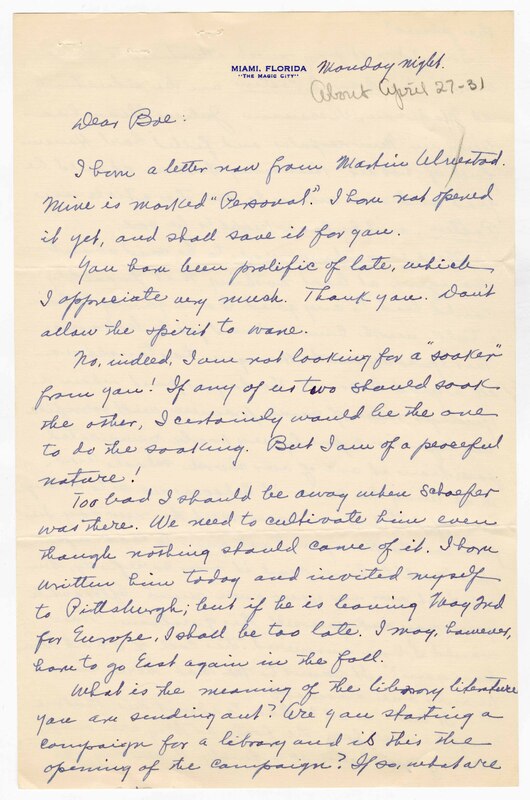 MIAMI, FLORIDA
"THE MAGIC CITY"
Monday night.
About April 27-31
Dear Boe:
I have a letter now from Martin
Mine is marked "Personal." I have not opened
it yet, and shall save it for you.
You have been prolific of late, which
I appreciate very much. Thank you. Don't
allow the spirit to wane.
No, indeed, I am not looking for a "soaker"
from you! If any of us two should soak
the other, I certainly would be the one
to do the soaking. But I am of a peaceful
nature!
Too bad I should be away when Schaefer
was there. We need to cultivate him even
though nothing should come of it. I have
written him today and invited myself
to Pittsburgh; but if he is leaving May 2nd
for Europe, I shall be too late. I may, however,
have to go East again in the fall.
What is the meaning of the library literature
you are sending out? Are you starting a
campaign for a library and is this the
opening of the campaign? If so, what are